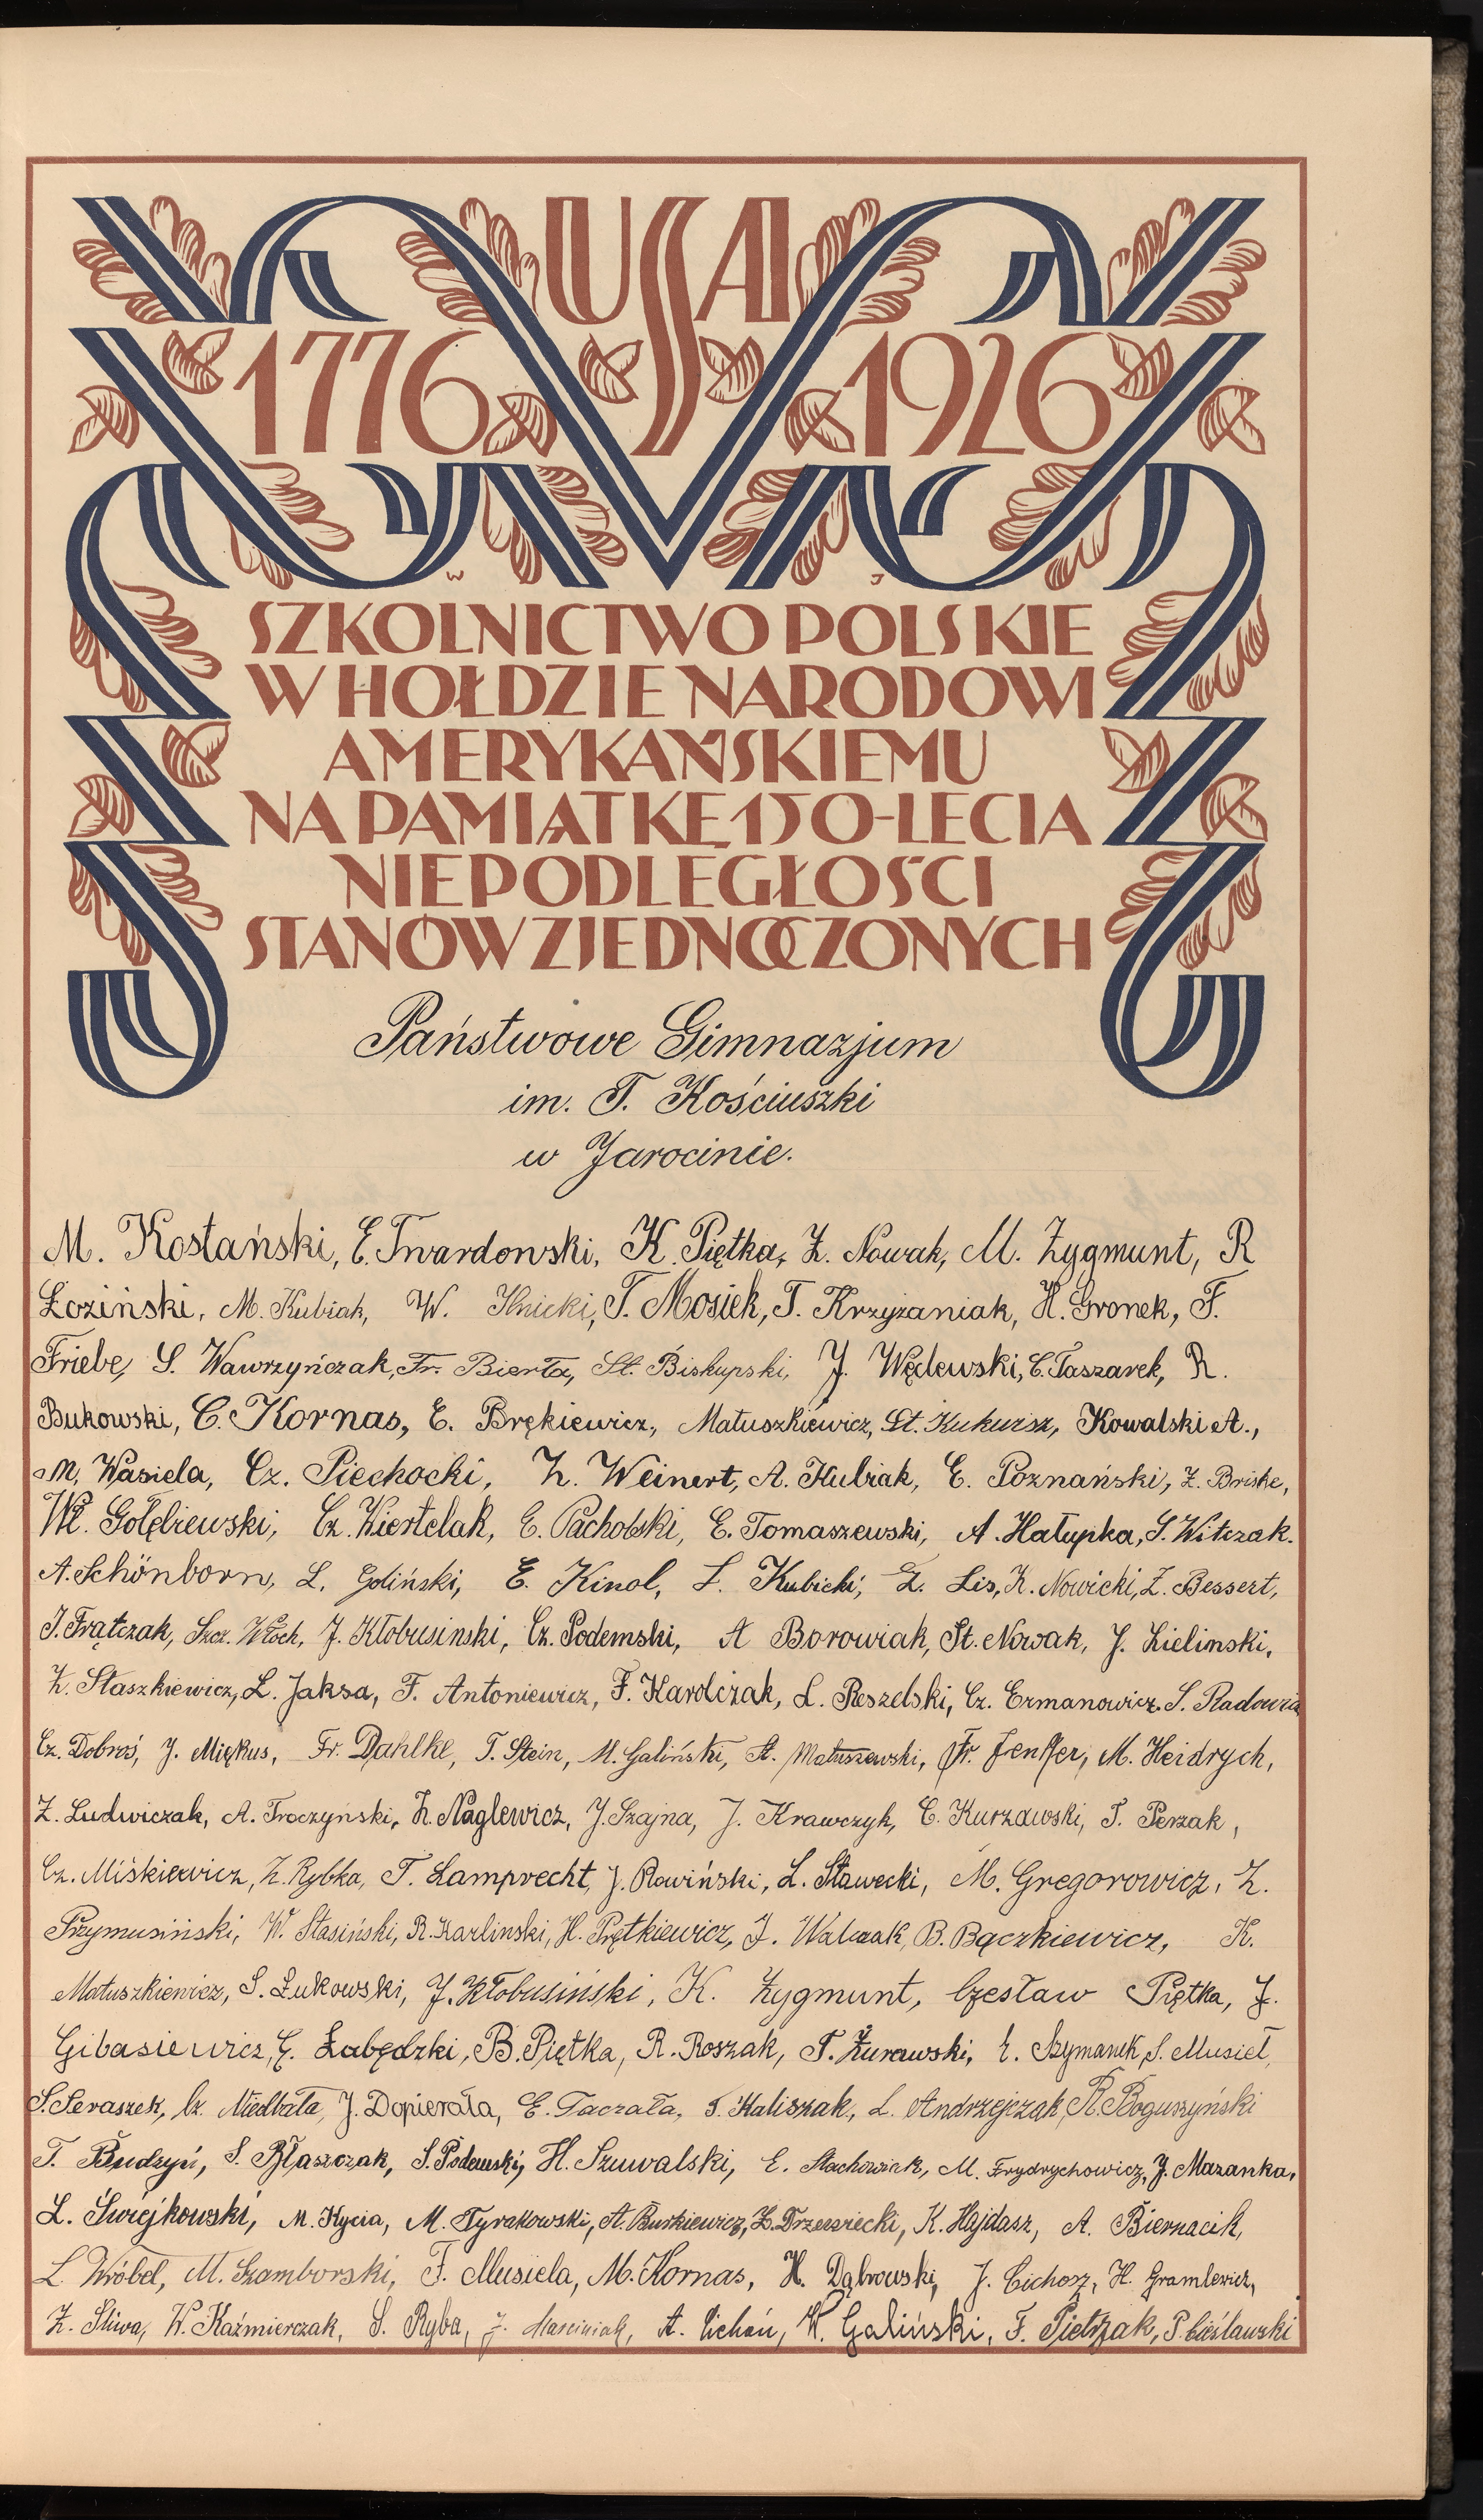 USA
1776 1926
W J
SZKOLNICTWO POLSKIE
W HOŁDZIE NARODOWI
AMERYKAŃSKIEMU
NA PAMIĄTKĘ 150-LECIA
NIEPODLEGŁOŚCI
STANÓW ZJEDNOCZONYCH
Państwowe Gimnazjum
im. T. Kościuszki
w Jarocinie.
M. Kostański, E. Twardowski, K. Piętka, Z. Nowak, M. Zygmunt, R
Łoziński, M. Kubiak, W. Ilnicki, T. Mosiek, T. Krzyżaniak, H. Gronek, F.
Friebe, S. Wawrzyńczak, Fr. Bierła, St. Biskupski, J. Węclewski, C. Taszarek, R.
Bukowski, C. Kornas, E. Brękiewicz, Matuszkiewicz, St. Kukuisz, Kowalski A.,
M. Wasiela, Cz. Piechocki, Z. Weinert, A. Kubiak, E. Poznański, Z. Briske,
Wł. Gołębiewski, Cz. Kiertelak, E. Pacholski, E. Tomaszewski, A. Hałupka, S. Witczak.
A. Schönborn, L. Goliński, E. Kinol, L. Kubicki, Z. Lis, K. Nowicki, Z. Bessert,
J. Frątczak, Szcz. Włoch, J. Kłobusinski, Cz. Podemski, A Borowiak, St. Nowak, J. Zielinski,
Z. Staszkiewicz, L. Jaksa, F. Antoniewicz, F. Karolczak, L. Reszelski, Cz. Ermanowicz. S. Radowicz
Cz. Dobroś, J. Miękus, Fr. Dahlke, T. Stein, M. Galiński, A. Matuszewski, Fr. Jenffer, M. Heidrych,
Z. Ludwiczak, A. Troczyński, Z. Naglewicz, J. Szajna, J. Krawczyk, C. Kurzawski, T. Perzak,
Cz. Miśkiewicz, Z. Rybka, T. Lamprecht, J. Rowiński, L. Stawecki, M. Gregorowicz, Z.
Przymusiński, W. Stasiński, R. Karlinski, H. Prętkiewicz, J. Walczak, B. Bączkiewicz, K.
Matuszkiewicz, S. Łukowski, J. Kłobusiński, K. Zygmunt, Czesław Piętka, J.
Gibasiewicz, G. Łabędzki, B. Piętka, R. Roszak, T. Żurawski, E. Szymanek, S. Musieł,
S. Seraszek, Cz. Niedbała, J. Dopierała, E. Taczała, T. Kaliszak, L. Andrzejczak, R. Boguszyński
T. Budzyń, S. Błaszczak, S. Podewski, H. Szuwalski, E. Stachowiak, M. Frydrychowicz, J. Mazanka,
L. Świejkowski, M. Kycia, M. Tyrakowski, A. Burkiewicz, Z. Drzewiecki, K. Hajdasz, A. Biernacik,
L. Wróbel, M. Szamborski, F. Musiela, M. Kornas, H. Dąbrowski, J. Cichosz, H. Gramlewicz,
Z. Śliwa, W. Kaźmierczak, S. Ryba, J. Marciniak, A. Cichoń, K. Galiński, F. Pietrzak, P. Cieślawski